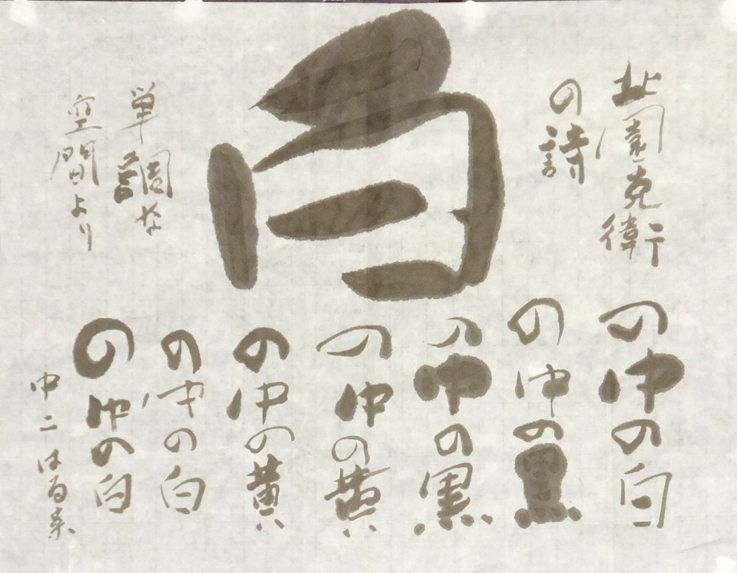 北園克衛
の詩
白
単調な
空間より
の中の白
の中の黒
の中の黒
の中の黄
の中の黄
の中の白
の中の白
中二 はる菜